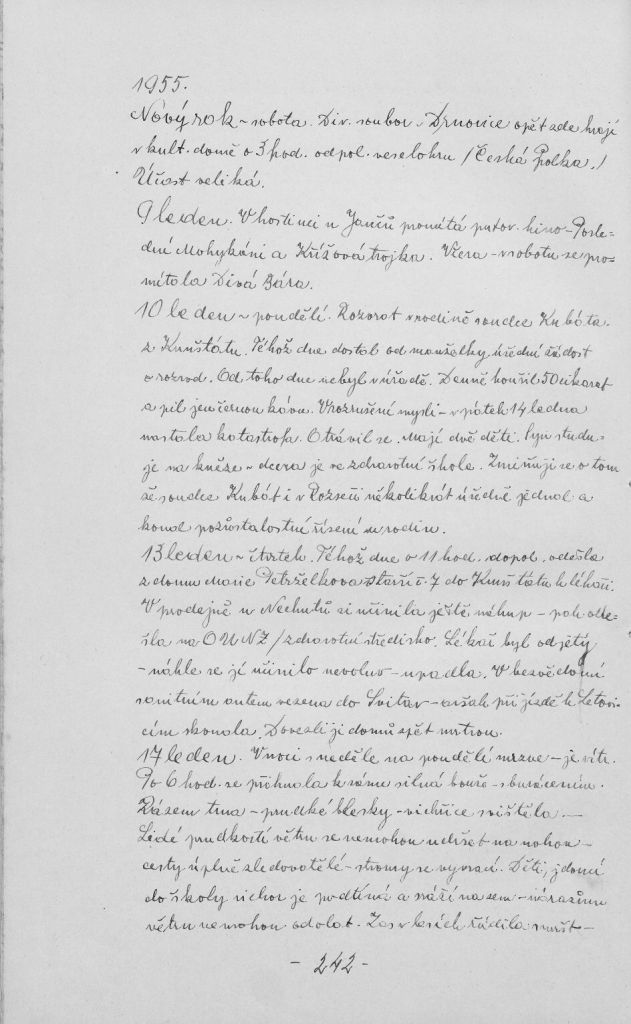 1955.
Nový rok - sobota. Div. soubor z Drnovice opět zde hrají
v kult. domě o 3 hod. odpol. veselohru /Česká Polka./
Účast veliká.
9 leden. V hostinci u Jančů promítá putov. kino - Posle-
dní Mohykáni a Křížová trojka. Včera - v sobotu se pro-
mítala Divá Bára.
10 leden - pondělí. Rozvrat v rodině soudce Kubáta
z Kunštátu. Téhož dne dostal od manželky úřední žádost
o rozvod. Od toho dne nebyl v úřadě. Denně kouřil 50 cikaret
a pil jen černou kávu. V rozrušení mysli - v pátek 14 ledna
nastala katastrofa. Otrávil se. Mají dvě děti. Syn studu-
je na kněze - dcera je ve zdravotní škole. Zmiňuji se o tom
že soudce Kubát i v Rozseči několikrát úředně jednal a
konal pozůstalostní řízení u rodin.
13 leden - čtvrtek. Téhož dne o 11 hod. dopol. odešla
z domu Marie Petrželkova starší č. 7 do Kunštátu k lékaři.
V prodejně u Nechutů si učinila ještě nákup - pak ode-
šla na OUNZ /zdravotní středisko. Lékař byl odjetý
- náhle se jí učinilo nevolno - upadla. V bezvědomí
sanitním autem vezena do Svitav - avšak při jízdě k Letovi-
cím skonala. Dovezli ji domů zpět mrtvou.
17 leden. V noci s neděle na pondělí mrzne - je vítr.
Po 6 hod. se přihnala k ránu silná bouře - s burácením.
Rázem tma - prudké blesky - vichřice svištěla. -
Lidé prudkostí větru se nemohou udržet na nohou -
cesty úplně zledovatělé - stromy se vyvrací. Děti, jdoucí
do školy vichor je podtíná a sráží na zem - nárazům
větru nemohou odolat. Zas v lesích řádila smršť -
- 242 -